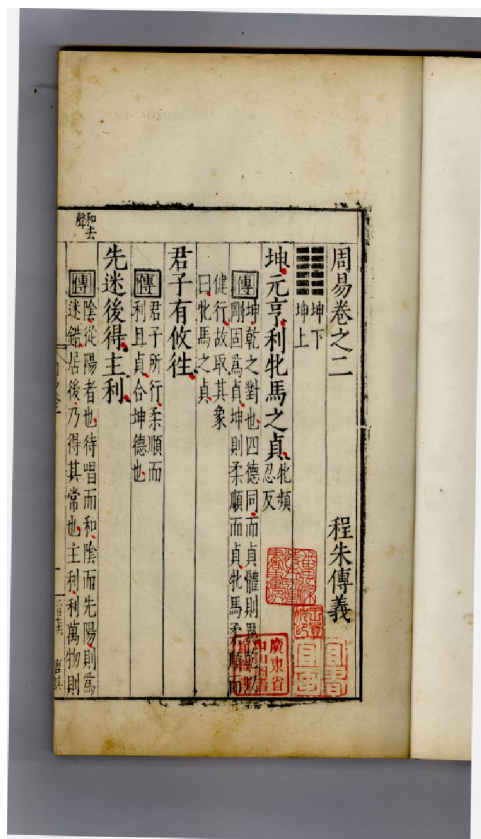 周易卷之二
程朱傳義
坤下
坤上
坤元亨利牝馬之貞
牝頻
忍反
傳
坤乾之對也四德同而貞體則異
剛固為貞坤則柔順而貞牝馬柔順而
健行故取其象
曰牝馬之貞
君子有攸往
傳
君子所行柔順而
利且貞合坤德也
先迷後得主利
和去
聲
傳
陰從陽者也待唱而和陰而先陽則為
迷錯居後乃得其常也主利利萬物則
廣東省